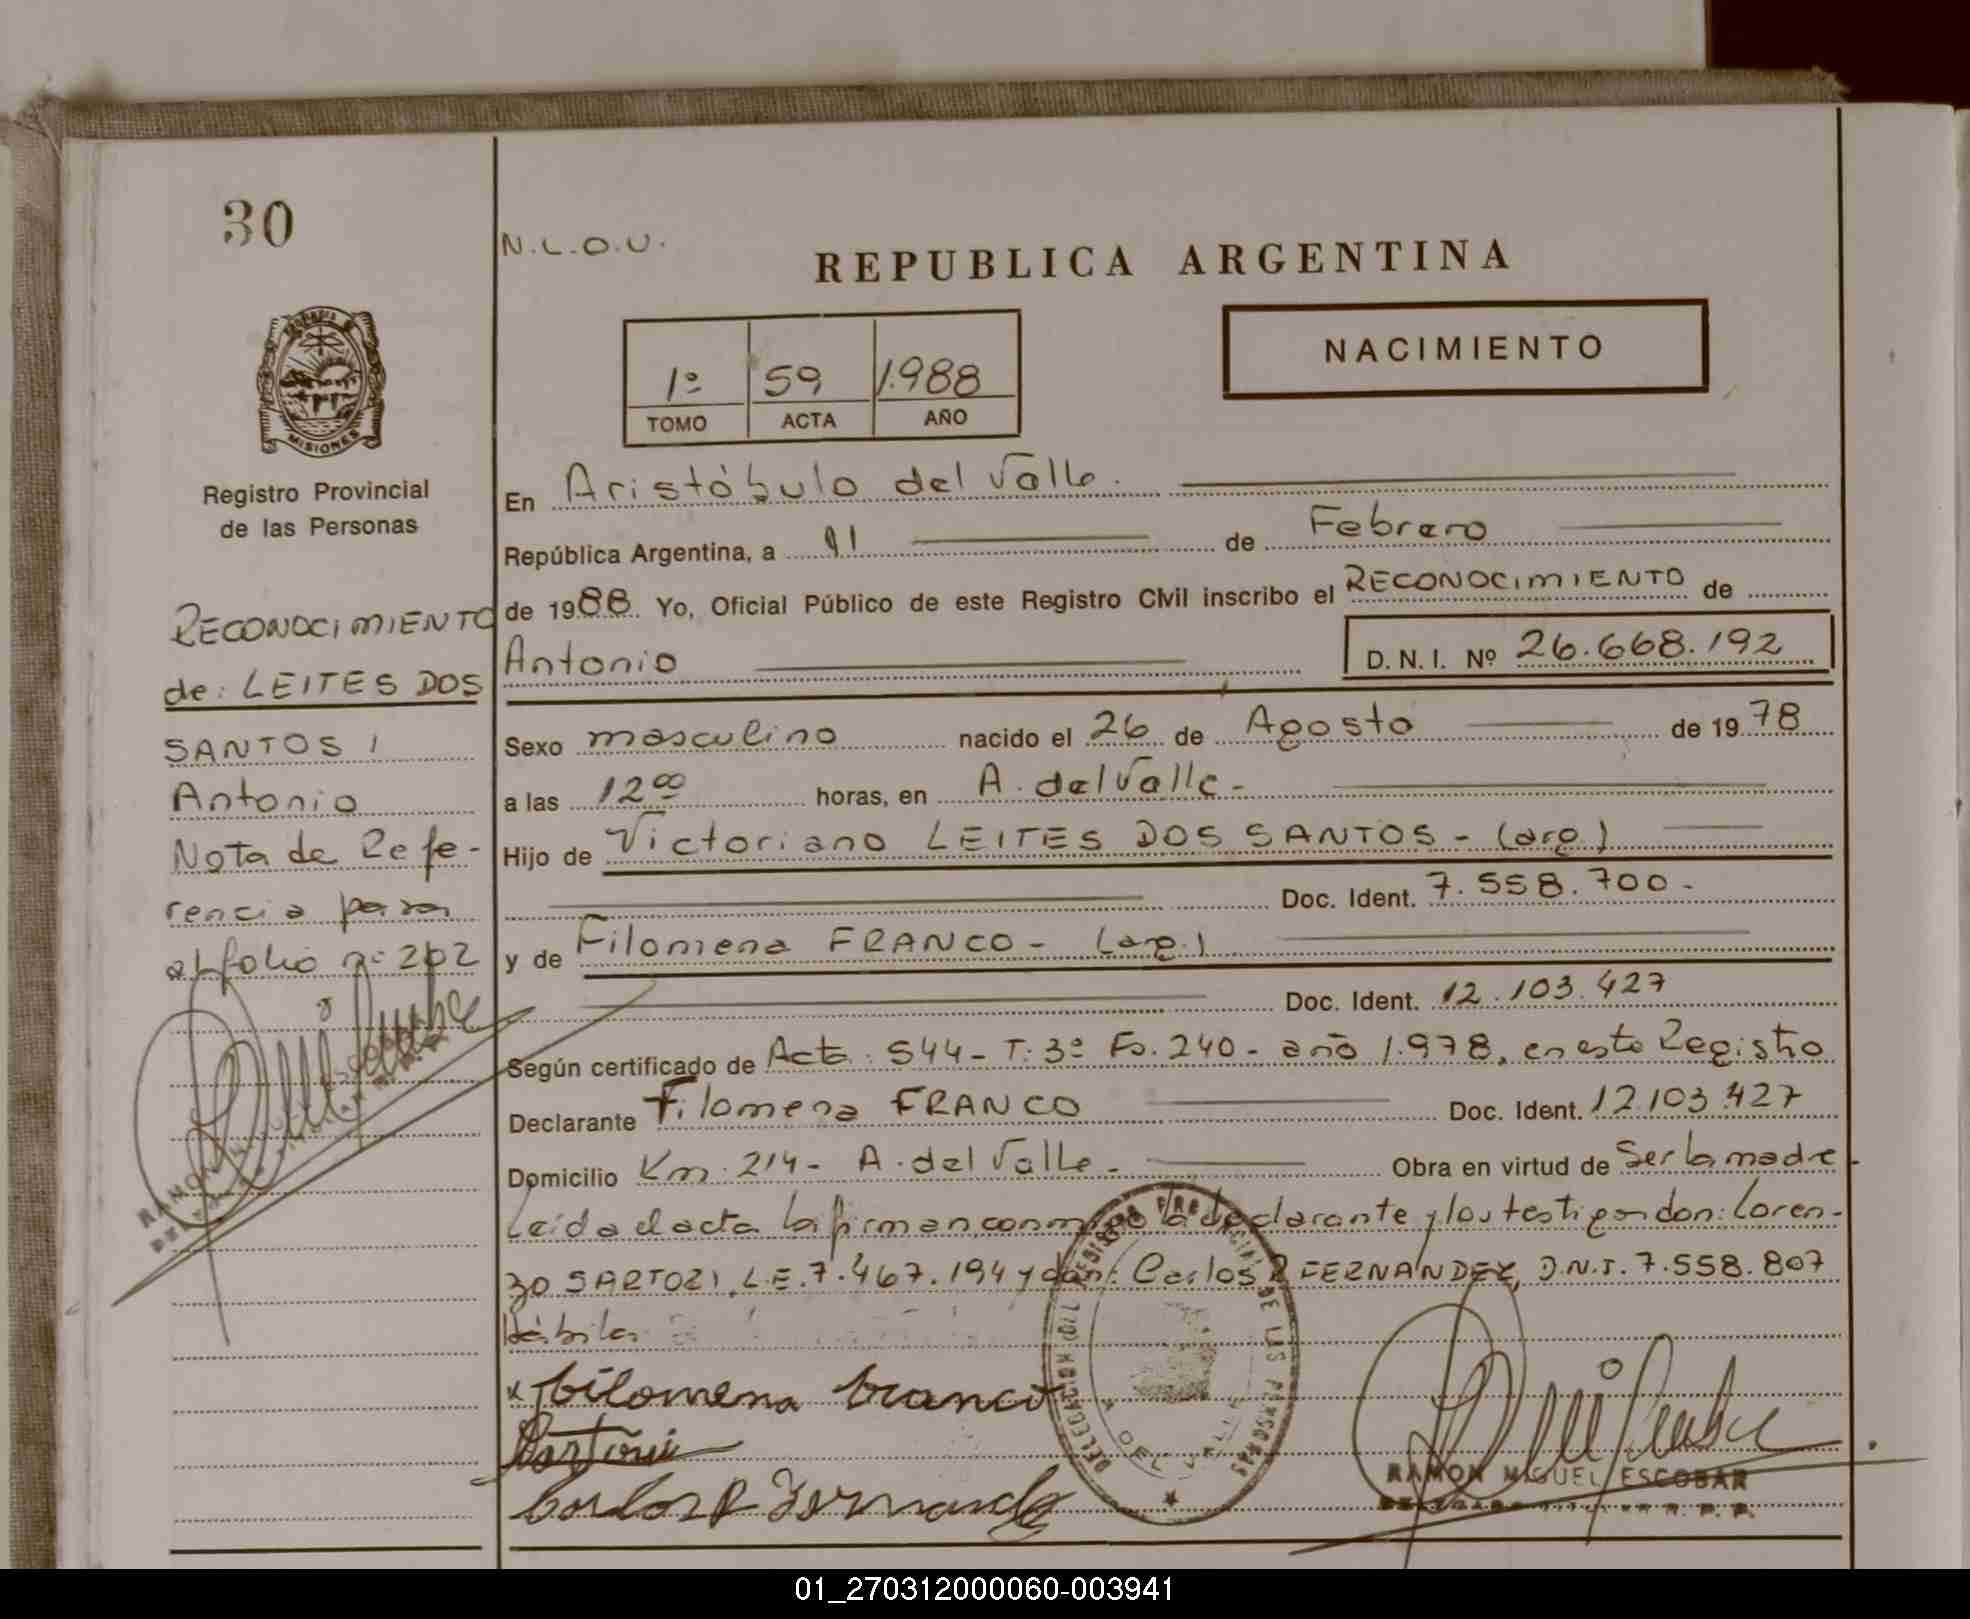 30
N.L.O.U.
REPUBLICA ARGENTINA
1º 59 1.988
TOMO ACTA AÑO
NACIMIENTO
MISIONES
Registro Provincial
de las Personas
RECONOCIMIENTO
de: LEITES DOS
SANTOS,
Antonio
Nota de Refe-
rencia pasar
al folio nº 202
En Aristóbulo del Valle.
República Argentina, a 11 de Febrero
de 1988. Yo, Oficial Público de este Registro Civil inscribo el RECONOCIMIENTO de
Antonio D.N.I. Nº 26.668.192
Sexo masculino nacido el 26 de Agosto de 1978
a las 12 00 horas, en A. del Valle-
Hijo de Victoriano LEITES DOS SANTOS - (arg.)
Doc. Ident. 7.558.700-
y de Filomena FRANCO - (arg.)
Doc. Ident. 12.103.427
Según certificado de Acta: 544- T: 3º Fo. 240- año 1.978, en este Registro
Declarante Filomena FRANCO Doc. Ident. 12.103.427
Domicilio Km. 214- A. del Valle- Obra en virtud de Ser la madre-
Leída el acta la firman, conmigo la declarante y los testigos don: Loren-
zo SARTORI, L.E. 7.467.194 y don: Carlos R FERNANDEZ, D.N.I. 7.558.807
Hábiles
x filomena branco
Sartori
Carlos R Fernandez
DELEGACION REGISTRO PROVINCIAL DE LAS PERSONAS
RAMON MIGUEL ESCOBAR
01_270312000060-003941